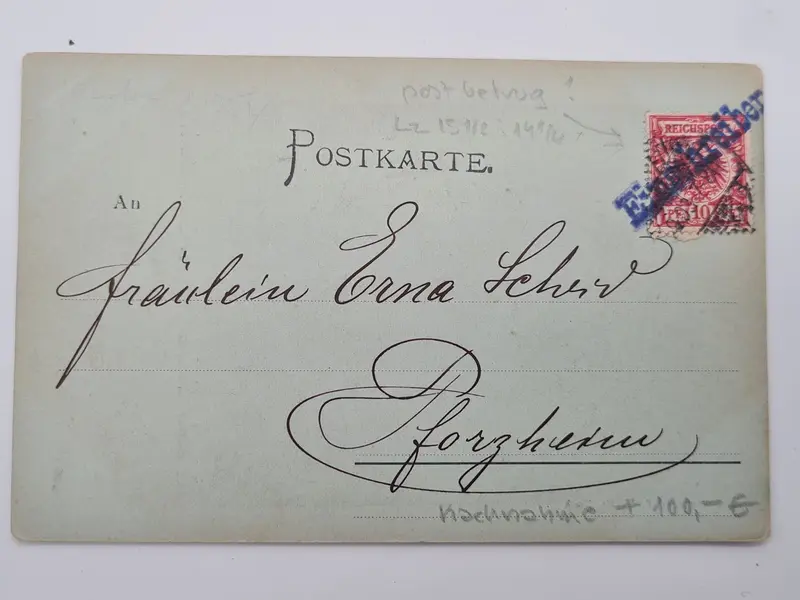 postbetrug!
Lz 15 1/2 : 14 1/4
POSTKARTE.
REICHSPOST
Einschreiben
10
An
Fräulein Erna Scheid
Pforzheim
Nachnahme + 100,- €